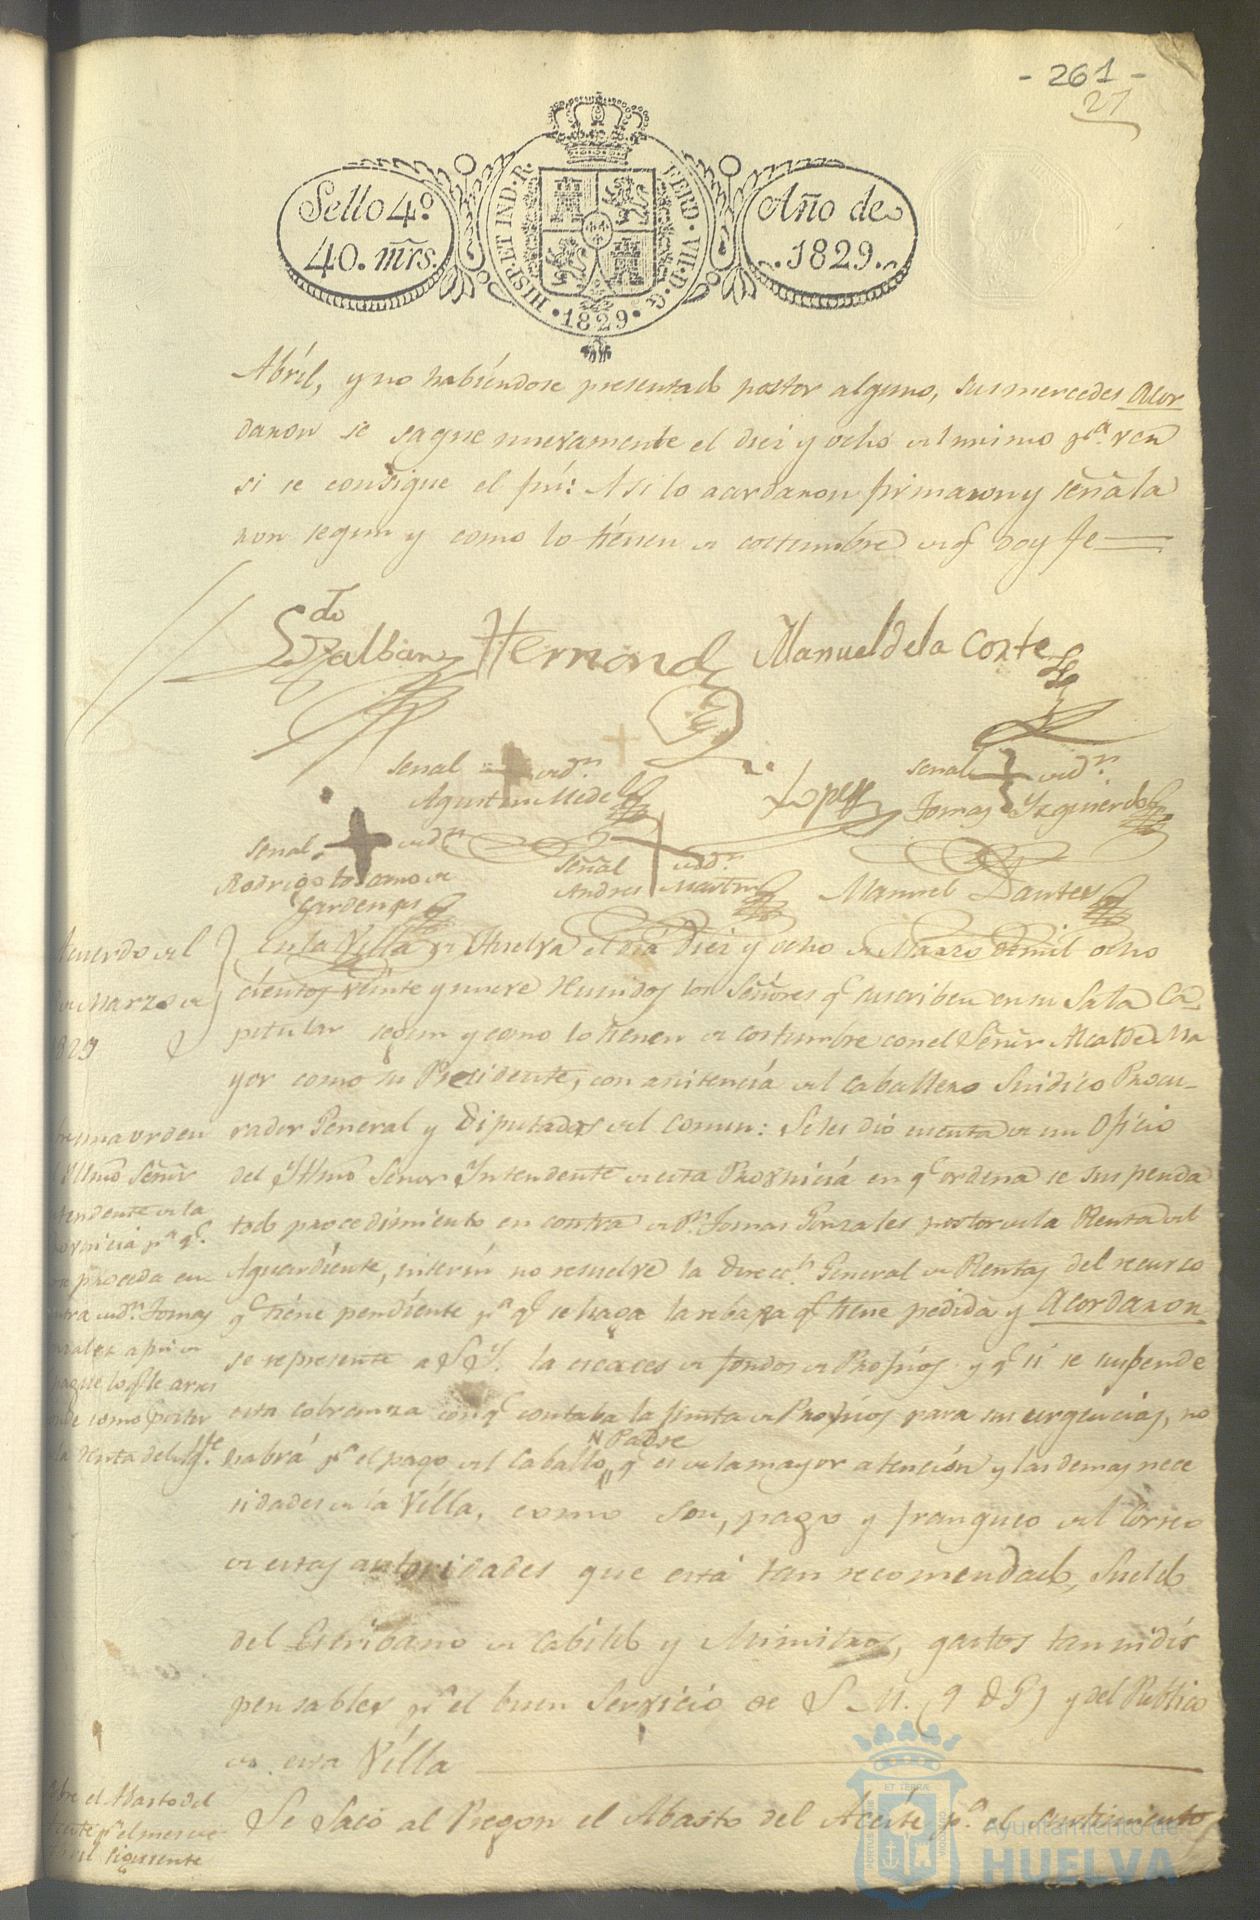 - 261 -
27
Sello 4º
40. mrs.
HISP. ET IND. R.
FERD. VII. D. G.
1829
Año de
1829.
Abril, y no habiéndose presentado postor alguno, sus mercedes Acor
daron se saque nuevamente el diez y ocho del mismo pª. ver
si se consigue el fin: Asi lo acordaron firmaron y señala
ron segun y como lo tienen de costumbre de q doy fe
Manuel de la Corte
señal de Dn.
Agustin Mide
Lopez
señal de Dn.
Tomas Yzquierdo
señal de Dn
Rodrigo Lozano de
Cardenas
señal de Dn.
Andres Martin
Manuel Dantes
Acuerdo del
de Marzo de
829
En la Villa de Huelva el dia Diez y ocho de Marzo de mil ocho
cientos veinte y nueve Reunidos los Señores q suscriben en su Sala Ca
pitular segun y como lo tienen de costumbre con el Señor Alcalde Ma
yor como su Presidente, con asistencia del Caballero Sindico Procu-
rador General y Diputados del comun: Se les dió cuenta de un Oficio
del Yllmo Señor Yntendente de esta Provincia en q ordena se suspenda
todo procedimiento en contra de Dn. Tomas Gonzales postor de la Renta del
Aguardiente, interin no resuelve la Direccn. General de Rentas del recurso
q tiene pendiente pª q se haga la rebaja q tiene pedida y Acordaron
se represente a S Y. la escaces de fondos de Propios y q si se suspende
esta cobranza con q contaba la Junta de Propios para sus urgencias, no
habrá pª el pago del Caballo Padre q es de la mayor atención y las demas nece
sidades de la Villa, como son, pago y franqueo del Correo
de estas autoridades que está tan recomendado, Sueldo
del Escribano de Cabildo y Ministros, gastos tan indis
pensables pª el buen Servicio de S. M. (q D G) y del Publico
de esta Villa
una orden
Yllmo Señor
tendente de la
ovincia pª q.
proceda en
tra de Dn. Tomas
nzalez a fin de
pague lo q le
como postor
la Renta del
Se Sacó al Pregon el Abasto del Aceite pª. el surtimiento
bre el Abasto del
ceite pª el mes de
bril siguiente
ET TERRÆ
Ayuntamiento de
HUELVA